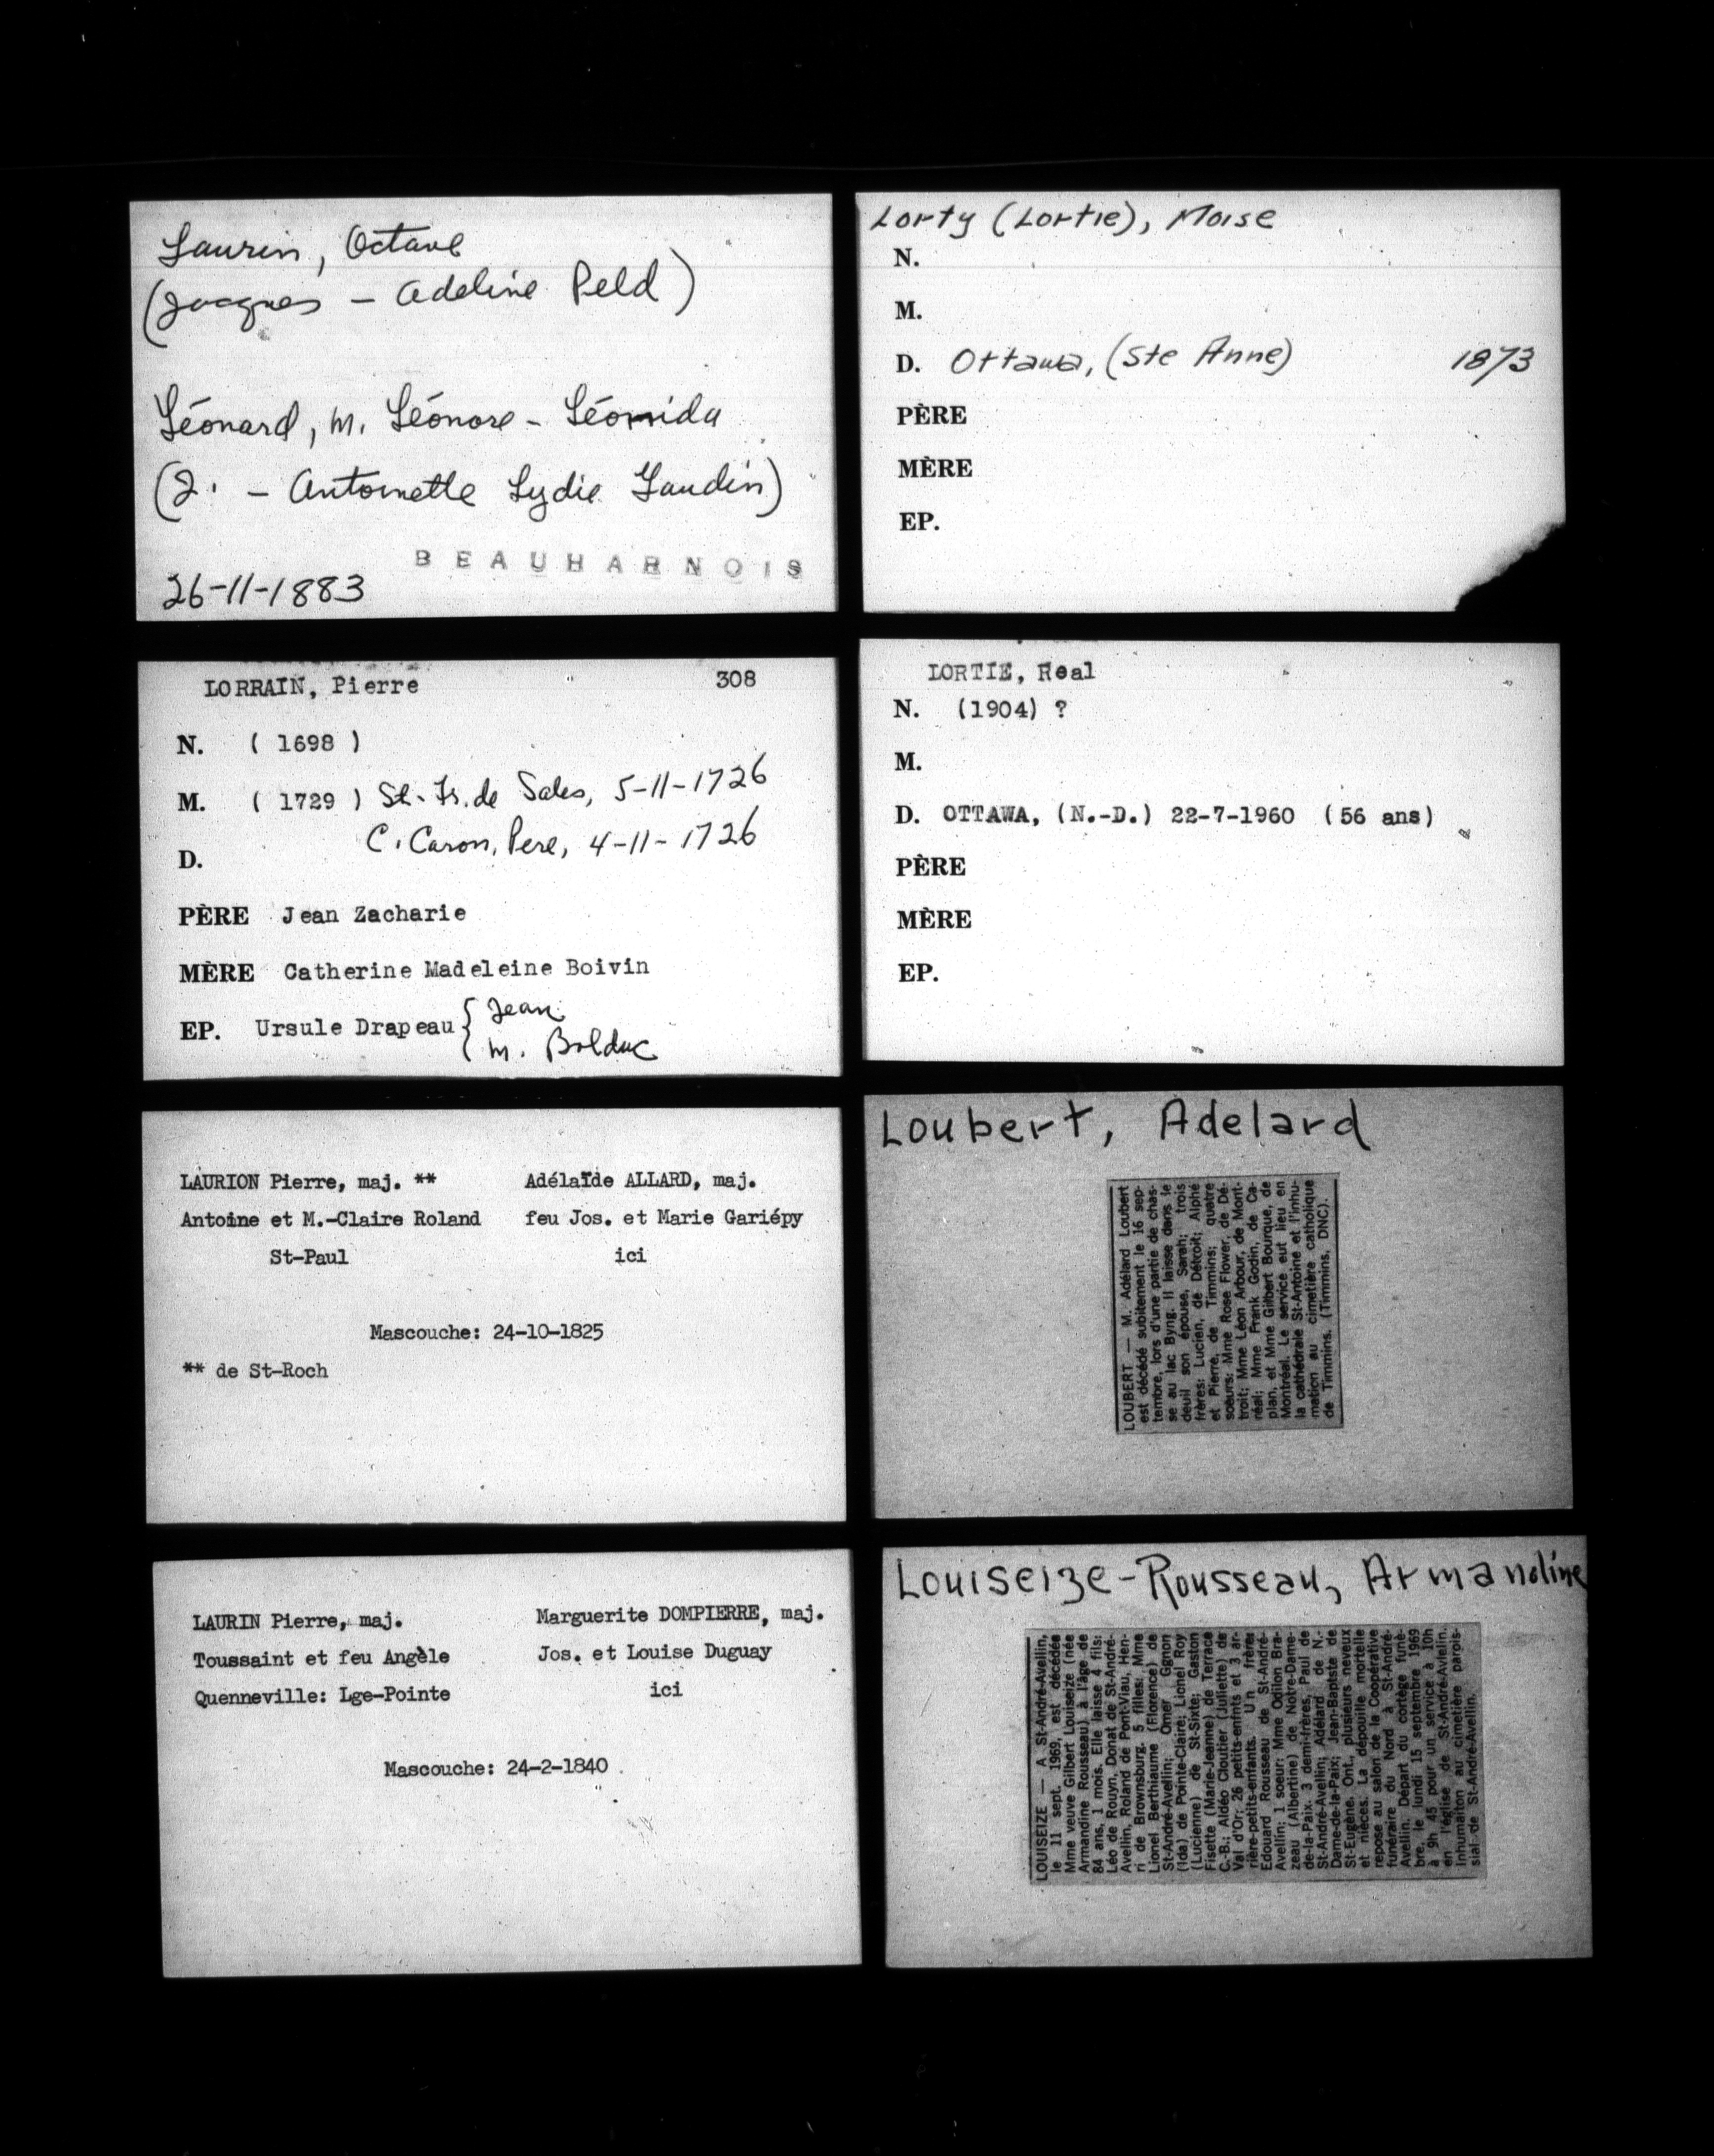 Laurin, Octave
(Jacques - Adeline Peld)
Léonard, M. Léonore - Léonida
(J. - Antoinette Lydie Gaudin)
BEAUHARNOIS
26-11-1883
LORRAIN, Pierre 308
N. ( 1698 )
M. ( 1729 ) St-Fr. de Sales, 5-11-1726
C. Caron, Pere, 4-11-1726
D.
PÈRE Jean Zacharie
MÈRE Catherine Madeleine Boivin
EP. Ursule Drapeau { Jean
M. Bolduc
LAURION Pierre, maj. ** Adélaïde ALLARD, maj.
Antoine et M.-Claire Roland feu Jos. et Marie Gariépy
St-Paul ici
Mascouche: 24-10-1825
** de St-Roch
LAURIN Pierre, maj. Marguerite DOMPIERRE, maj.
Toussaint et feu Angèle Jos. et Louise Duguay
Quenneville: Lge-Pointe ici
Mascouche: 24-2-1840
Lorty (Lortie), Moise
N.
M.
D. Ottawa, (Ste Anne) 1873
PÈRE
MÈRE
EP.
LORTIE, Real
N. (1904) ?
M.
D. OTTAWA, (N.-D.) 22-7-1960 (56 ans)
PÈRE
MÈRE
EP.
Loubert, Adelard
LOUBERT — M. Adélard Loubert
est décédé subitement le 16 sep-
tembre, lors d'une partie de chas-
se au lac Byng. Il laisse dans le
deuil son épouse, Sarah; trois
frères: Lucien, de Détroit; Alphé
et Pierre, de Timmins; quatre
soeurs: Mme Rose Flower, de Dé-
troit; Mme Léon Arbour, de Mont-
réal; Mme Frank Godin, de Ca-
plan, et Mme Gilbert Bourque, de
Montréal. Le service eut lieu en
la cathédrale St-Antoine et l'inhu-
mation au cimetière catholique
de Timmins. (Timmins, DNC).
Louiseize-Rousseau, Armandine
LOUISEIZE — A St-André-Avellin,
le 11 sept. 1969, est décédée
Mme veuve Gilbert Louiseize (née
Armandine Rousseau) à l'âge de
84 ans, 1 mois. Elle laisse 4 fils:
Léo de Rouyn, Donat de St-André-
Avellin, Roland de Pont-Viau, Hen-
ri de Brownsburg. 5 filles: Mme
Lionel Berthiaume (Florence) de
St-André-Avellin; Omer Ggnon
(Ida) de Pointe-Claire; Lionel Roy
(Lucienne) de St-Sixte; Gaston
Fisette (Marie-Jeanne) de Terrace
C.-B.; Aldéo Cloutier (Juliette) de
Val d'Or; 26 petits-enfnts et 3 ar-
rière-petits-enfants. Un frère:
Edouard Rousseau de St-André-
Avellin; 1 soeur: Mme Odilon Bra-
zeau (Albertine) de Notre-Dame-
de-la-Paix. 3 demi-frères, Paul de
St-André-Avellin; Adélard de N.-
Dame-de-la-Paix; Jean-Baptiste de
St-Eugène, Ont., plusieurs neveux
et nièces. La dépouille mortelle
repose au salon de la Coopérative
funéraire du Nord à St-André-
Avellin. Départ du cortège funè-
bre, le lundi 15 septembre 1969
à 9h 45 pour un service à 10h
en l'église de St-André-Avlelin.
Inhumaiton au cimetière parois-
sial de St-André-Avellin.